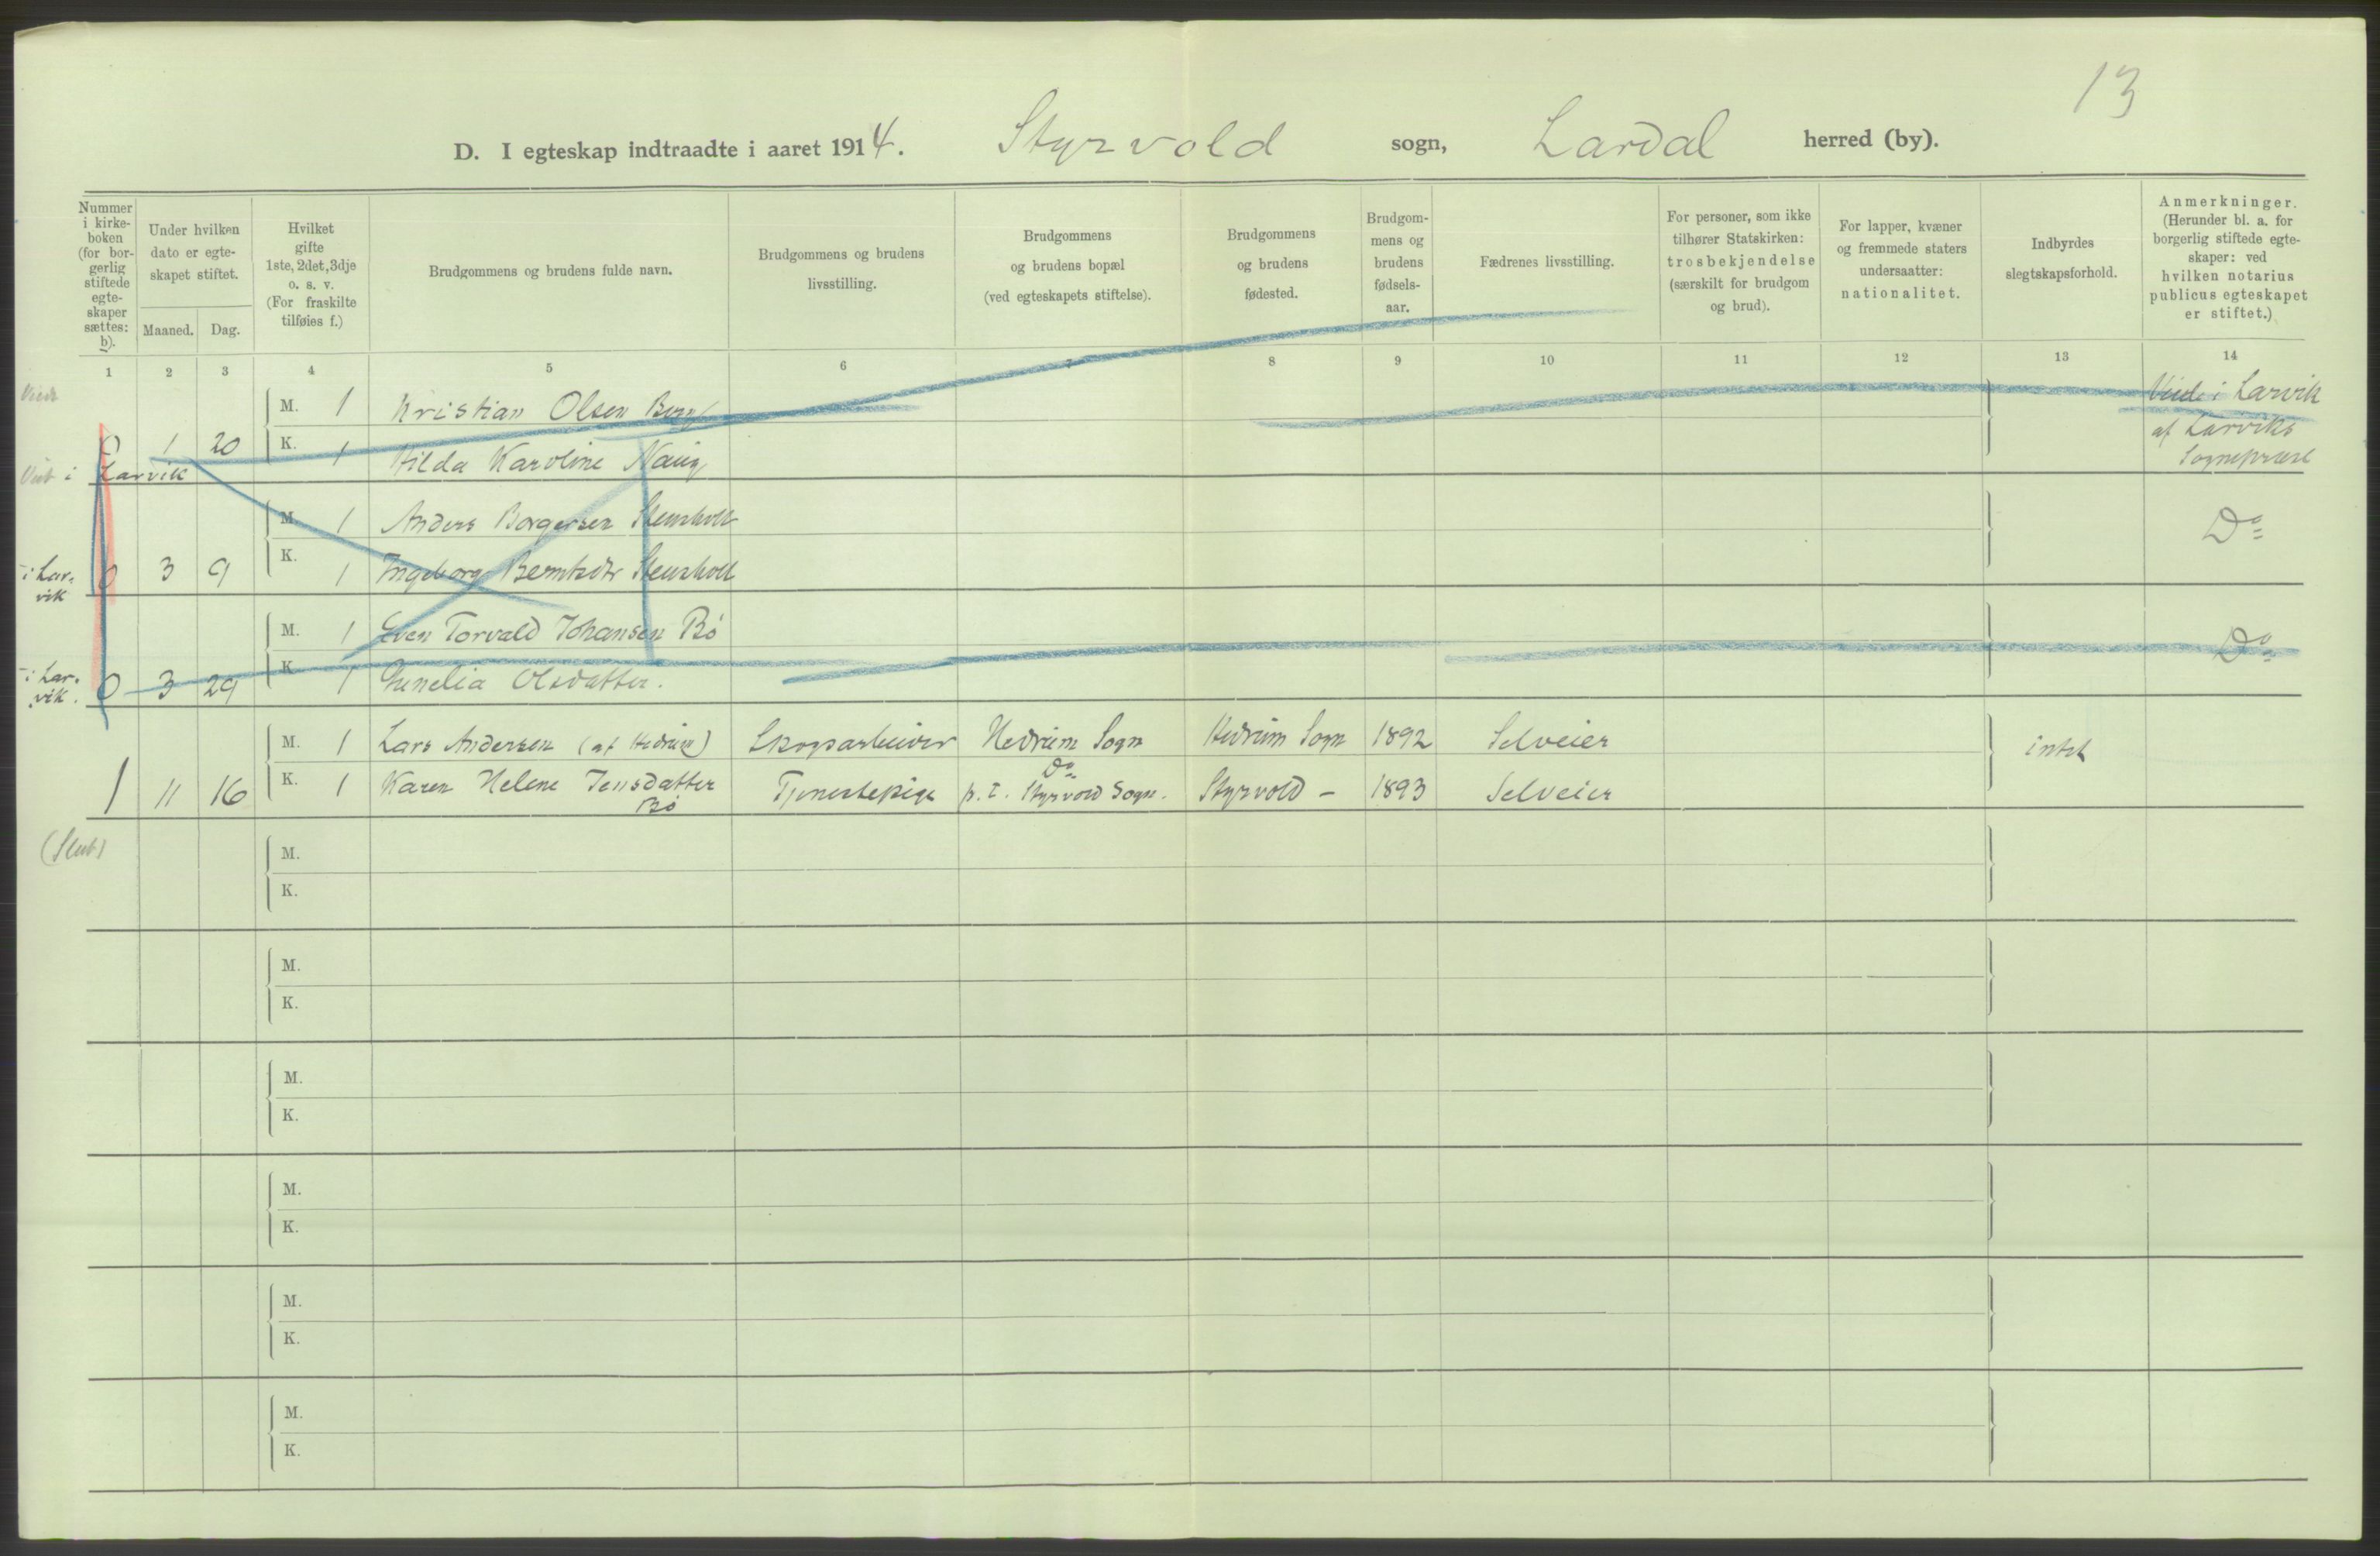 13
D. I egteskap indtraadte i aaret 1914. Styrvold sogn, Lardal herred (by).
Nummer i kirke-boken (for bor-gerlig stiftede egte-skaper sættes: b).
Under hvilken dato er egte-skapet stiftet.
Maaned. Dag.
Hvilket gifte 1ste, 2det, 3dje o. s. v. (For fraskilte tilføies f.)
Brudgommens og brudens fulde navn.
Brudgommens og brudens livsstilling.
Brudgommens og brudens bopæl (ved egteskapets stiftelse).
Brudgommens og brudens fødested.
Brudgom-mens og brudens fødsels-aar.
Fædrenes livsstilling.
For personer, som ikke tilhører Statskirken: trosbekjendelse (særskilt for brudgom og brud).
For lapper, kvæner og fremmede staters undersaatter: nationalitet.
Indbyrdes slegtskapsforhold.
Anmerkninger. (Herunder bl. a. for borgerlig stiftede egte-skaper: ved hvilken notarius publicus egteskapet er stiftet.)
1 2 3 4 5 6 7 8 9 10 11 12 13 14
M. 1 Kristian Olsen Berg Viede i Larvik
0 1 20 K. 1 Hilda Karoline Naug af Larviks
i Larvik Sogneprest
M. 1 Anders Borgersen Stensholt Do
i Lar-
vik
0 3 9 K. 1 Ingeborg Berntsdtr Stensholt
M. 1 Even Torvald Johansen Bö Do
i Lar-
vik.
0 3 29 K. 1 Gunelia Olsdatter.
M. 1 Lars Andersen (af Hedrum) Skogsarbeider Hedrum Sogn Hedrum Sogn 1892 Selveier intet
Do
1 11 16 K. 1 Karen Helene Jensdatter Tjenestepige p. t. Styrvold Sogn. Styrvold – 1893 Selveier
Bö
(Slut)
M.
K.
M.
K.
M.
K.
M.
K.
M.
K.
M.
K.